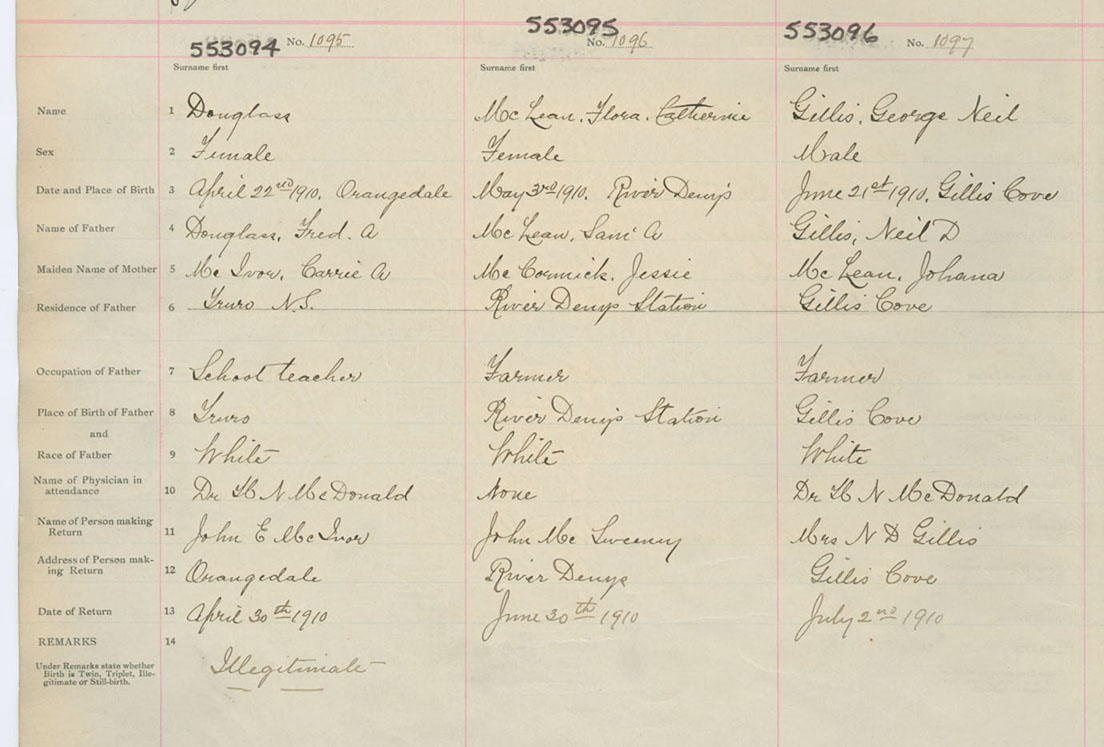 553094 No. 1095 553095 No. 1096 553096 No. 1097
Surname first Surname first Surname first
Name 1 Douglass McLean, Flora, Catherine Gillis, George Neil
Sex 2 Female Female Male
Date and Place of Birth 3 April 22nd 1910, Orangedale May 3rd 1910, River Denys June 21st 1910, Gillis Cove
Name of Father 4 Douglass, Fred. A McLean, Saml A Gillis, Neil D
Maiden Name of Mother 5 McIvor, Carrie A McCormick, Jessie McLean, Johana
Residence of Father 6 Truro N.S. River Denys Station Gillis Cove
Occupation of Father 7 School teacher Farmer Farmer
Place of Birth of Father 8 Truro River Denys Station Gillis Cove
and
Race of Father 9 White White White
Name of Physician in attendance 10 Dr H N McDonald None Dr H N McDonald
Name of Person making Return 11 John E McIvor John McSweeney Mrs N D Gillis
Address of Person mak-
ing Return 12 Orangedale River Denys Gillis Cove
Date of Return 13 April 30th 1910 June 30th 1910 July 2nd 1910
REMARKS 14
Under Remarks state whether
Birth is Twin, Triplet, Ille-
gitimate or Still-birth.
Illegitimate